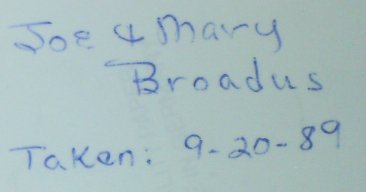 Joe & Mary
Broadus
Taken: 9-20-89